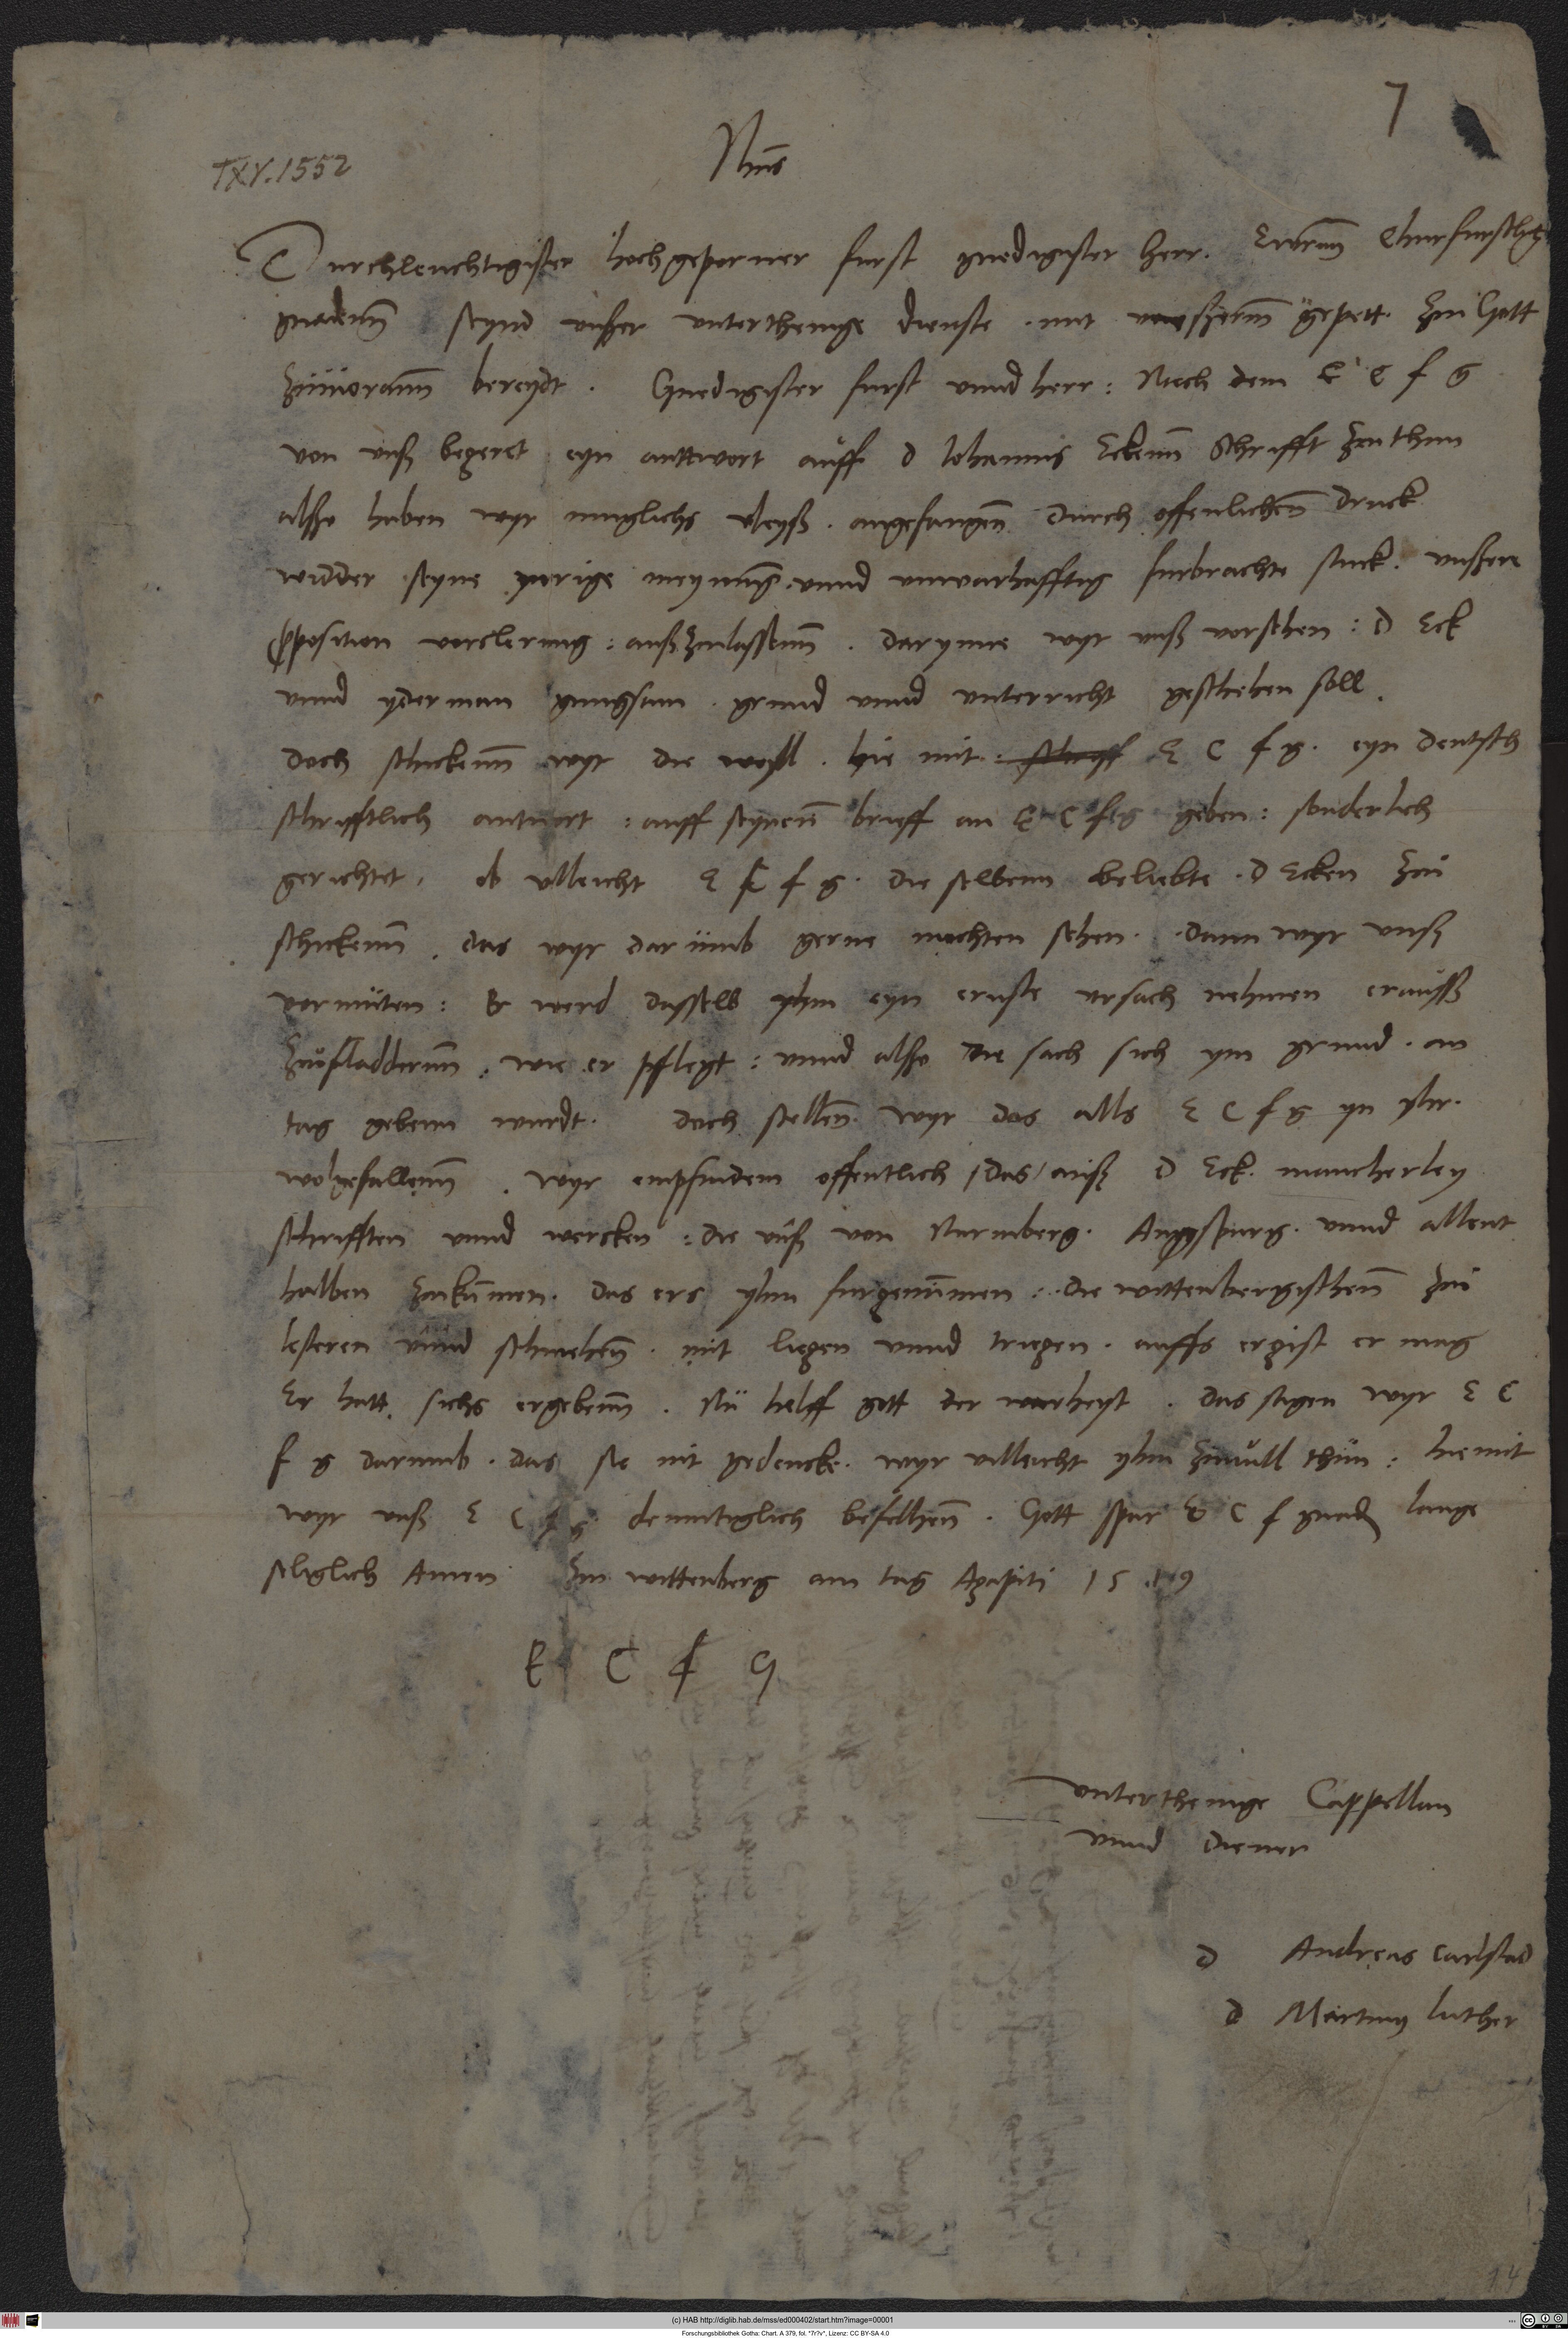 7
TXY.1552
Ihus
Durchleuchtigister hochgeporner furst gnedigister herr. Ewrnn Churfurstlich
gnadenn seynd unßer unterthenige dienste. mit unßerm gepett. zu Gott
zuuorann bereydt. Gnedigister furst unnd herr: Nach dem E C f G
von unß begeret eyn anttwort auff d Johannis Eckenn Schrifft zu thun
alßo haben wyr muglichs vleyß. angefangen durch offenlichen druck
widder seyne yrrige meynung. unnd unwarhafftig furbrachte stuck. unßere
proposition vorclerung: außzulassenn. darynne wyr unß vorsehen: D Eck
unnd yderman gnugsam. grund unnd unterricht geschehen soll.
doch schickenn wyr die weyll. hie mit: E C f g. eyn deutzsch
schrifftlich antwort: auff seynen brieff an E C f g geben: sonderlich
gerichtet. ob villeicht E C f g. die selbenn beliebte. D Ecken zu
schickenn. das wyr darumb gerne mochten sehen. dann wyr unß
vormuten: Er werd dasselb yhm eyn ernste ursach nehmen erauß
zufladdernn. wie er pflegt: unnd alßo die sach sich ym grund. an
tag gebenn wurdt. doch stellen wyr das alls E C f g yn yhr.
wolgefallenn. Wyr empfindem offentlich / das / auß D Eck. mancherley
schrifften unnd wercken: die unß von Nurmberg. Augspurg. unnd allent
halben zukummen. das ers yhm furgenummen: die wittenbergischenn zu
lesteren unnd schmehenn. mit liegen unnd triegen. auffs ergist er mag
Er hatt sichs ergebenn. Nu helff gott der warheyt. das sagen wyr E C
f g darumb. das sie nit gedencke. wyr villeicht yhm zuuill thun: hie mit
wyr unß E C f g demutiglich befelhenn. Gott spar E C f gnad lange
seliglich Amen Zu wittenberg am tag Agapiti 1519
E C f G
unterthenige Cappellan
unnd diener
D Andreas Carlstad
D Martinus Luther
14
(c) HAB http://diglib.hab.de/mss/ed000402/start.htm?image=00001
Forschungsbibliothek Gotha: Chart. A 379, fol. "7r?v", Lizenz: CC BY-SA 4.0